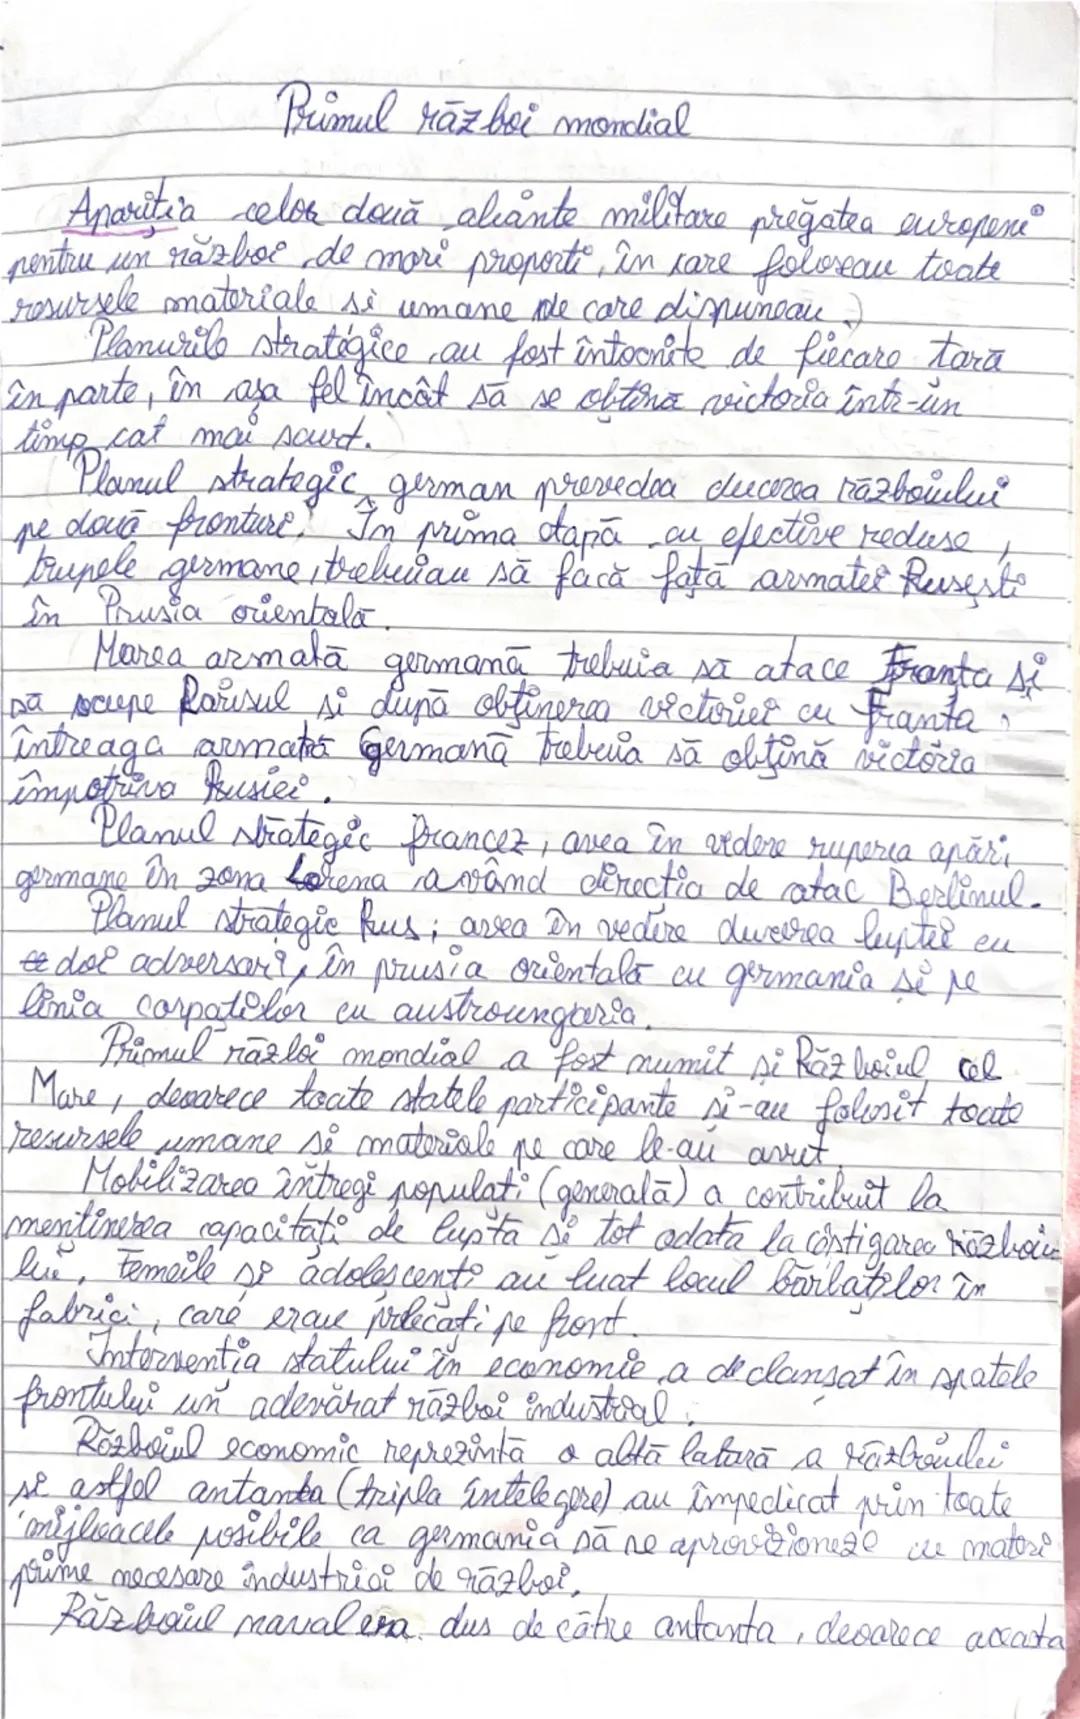 Primul război mondial
Apariția celor două aliante militare pregătea europeni
pentru un război de mari proporti, în care foloseau toate
resursele materiale si umane de care dispuneau.
Planurile strategice au fost întocmite de fiecare tară
în parte, în asa fel încât să se obtină victoria într-un
timp cat mai scurt.
Planul strategic german prevedea ducerea războiului
pe două fronturi. În prima etapă cu efective reduse,
trupele germane, trebuiau să facă față armatei Rusești
în Prusia orientală.
Marea armată germană trebuia să atace Franța și
să ocupe Parisul si după obținerea victoriei cu Franta,
întreaga armată Germană trebuia să obțină victoria
împotriva Rusiei.
Planul strategic francez, avea în vedere ruperea apări
germane în zona Lorena având direcția de atac Berlinul.
Planul strategic Rus; avea în vedere ducerea luptei cu
doi adversari, în prusia orientală cu germania si pe
linia carpatilor cu austroungaria.
Primul război mondial a fost numit si Războiul cel
Mare, deoarece toate statele participante si-au folosit toate
resursele umane si materiale pe care le-au avut.
Mobilizarea întregi populati (generală) a contribuit la
menținerea capacități de lupta si tot odata la câstigarea războiu
lui, femeile si adolescenti au luat locul bărbaților în
fabrici, care erau plecați pe front.
Interventia statului în economie a declanșat în spatele
frontului un adevărat război industrial.
Războiul economic reprezintă o altă latură a războiului
si astfel antanta (tripla întelegere) au împedicat prin toate
mijloacele posibile ca germania să se aprovizioneze cu materi
prime necesare industriei de război.
Războiul naval era dus de către antanta, deoarece aceasta